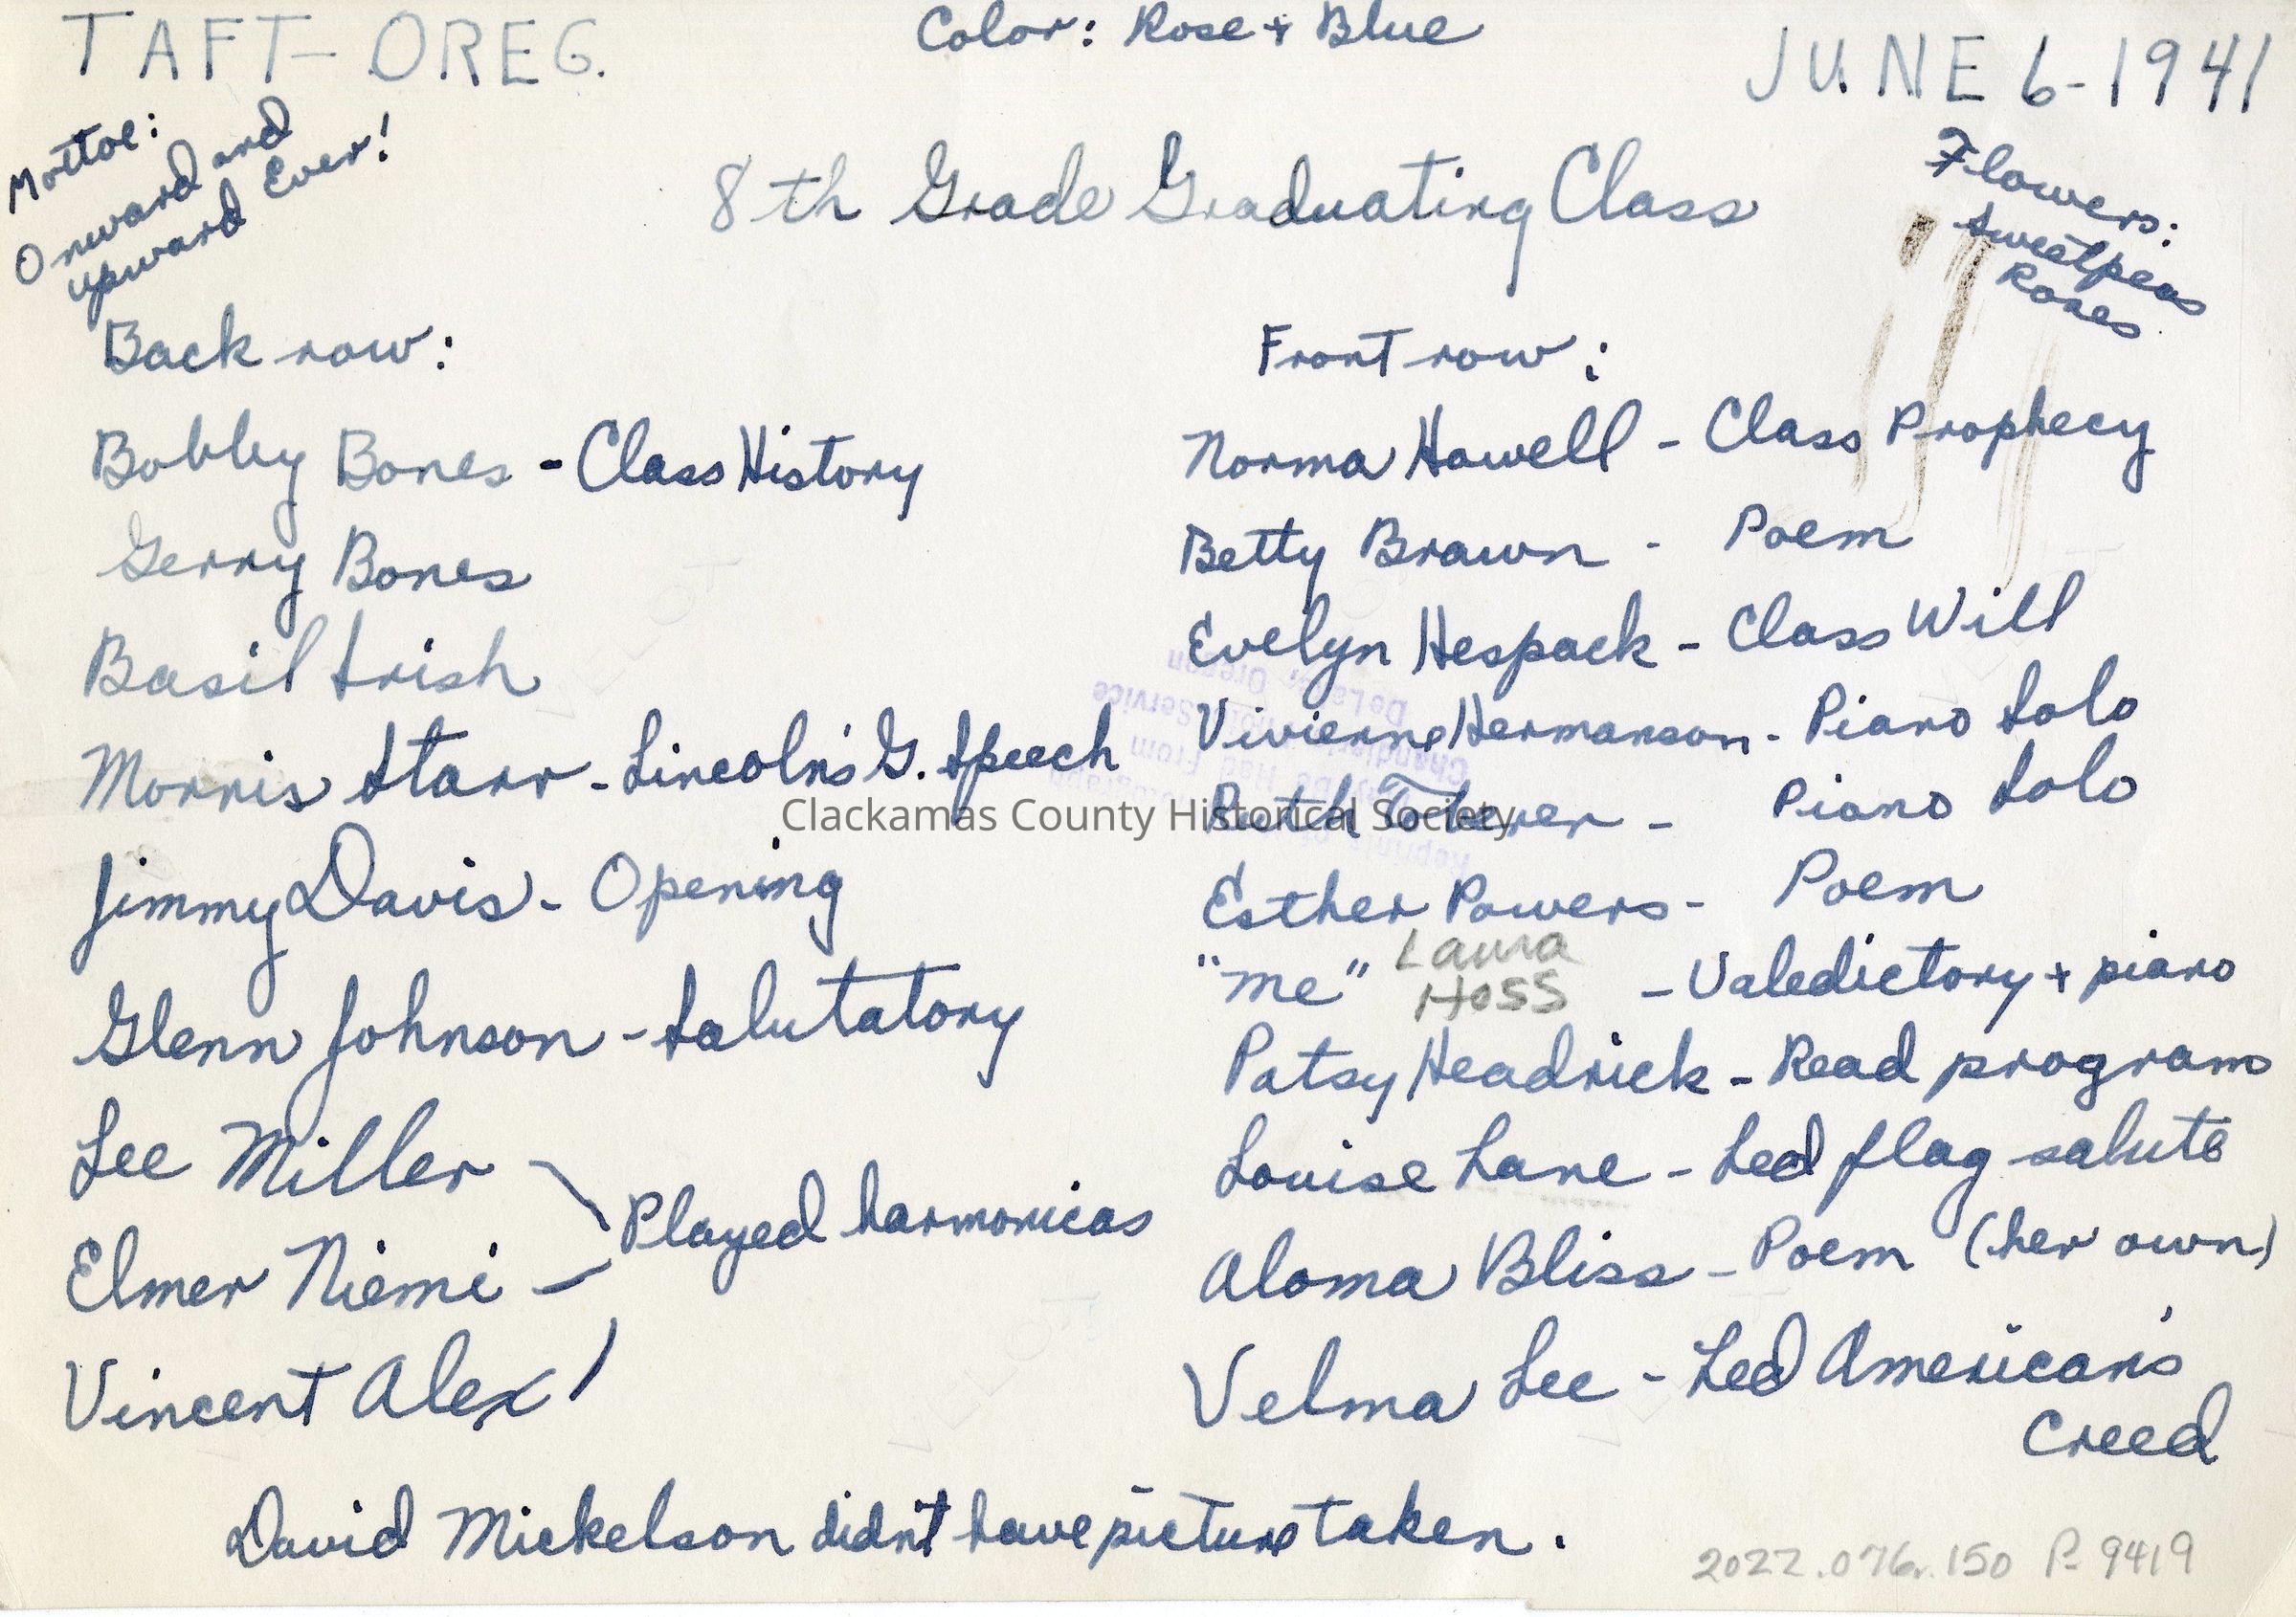 TAFT- OREG.
Color: Rose + Blue
JUNE 6-1941
Mottoe:
Onward and
upward Ever!
Flowers:
Sweetpeas
Roses
8th Grade Graduating Class
Back row:
Bobby Bones - Class History
Gerry Bones
Basil Irish
Morris Starr - Lincoln's G. Speech
Jimmy Davis - Opening
Glenn Johnson - Salutatory
Lee Miller
Played harmonicas
Elmer Niemi
Vincent Alex
Front row:
Norma Howell - Class Prophecy
Betty Brown - Poem
Evelyn Hespack - Class Will
Vivienne Hermanson - Piano Solo
Ruth - Piano Solo
Esther Powers - Poem
"Me" Laura
Hoss - Valedictory + piano
Patsy Headrick - Read program
Louise Lane - Led flag salute
Aloma Bliss - Poem (her own)
Velma Lee - Led American's
Creed
David Mickelson didn't have picture taken.
2022.076.150 P-9419
Clackamas County Historical Society
DeLake, Oregon